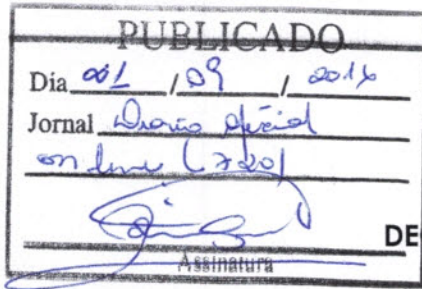 PUBLICADO
Dia 001 / 09 / 2016
Jornal Diario Oficial
on line (720)
DE
Assinatura